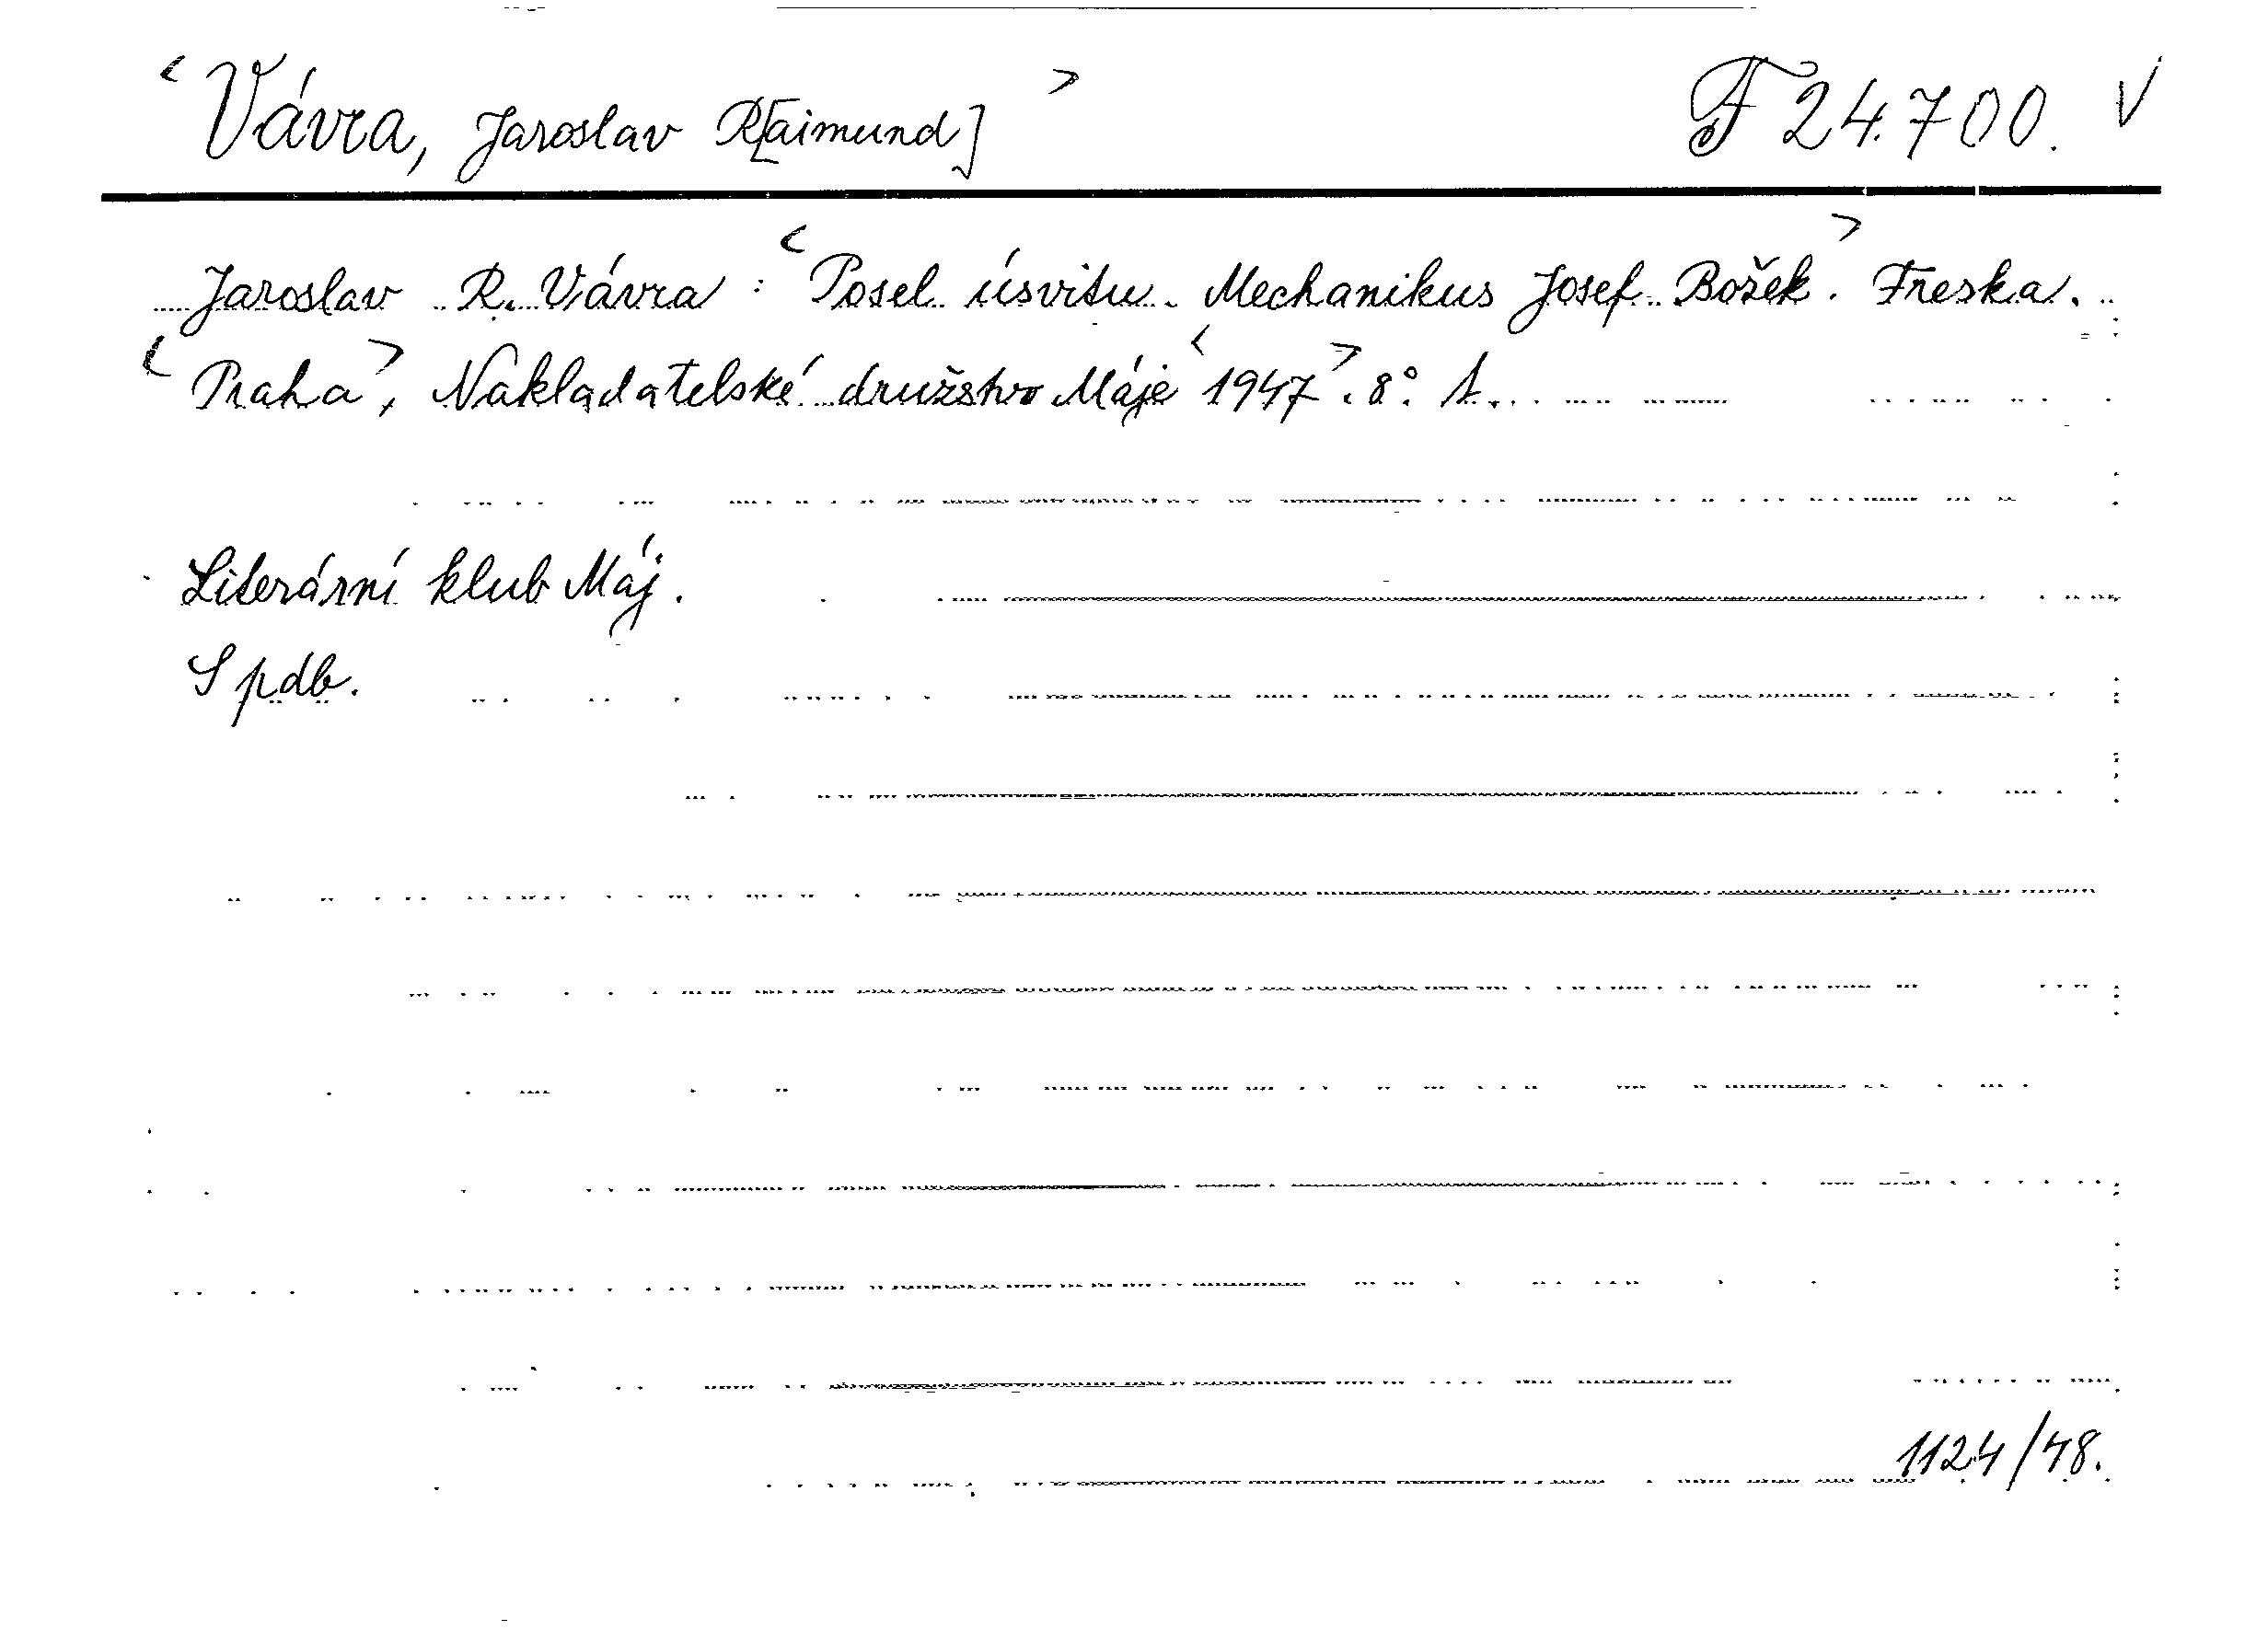 <Vávra, Jaroslav R[aimund]> F 24.700. V
Jaroslav R. Vávra: <Posel úsvitu. Mechanikus Josef Božek>. Freska.
<Praha>, Nakladatelské družstvo Máje <1947>. 8°. 1.
Literární klub Máj.
S pdb.
1124/48.